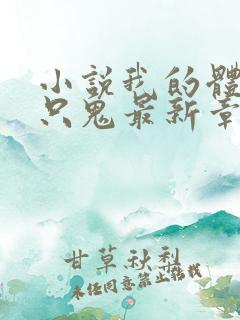 小說我的體
只鬼最新章
甘草秋梨
未經同意禁止轉載